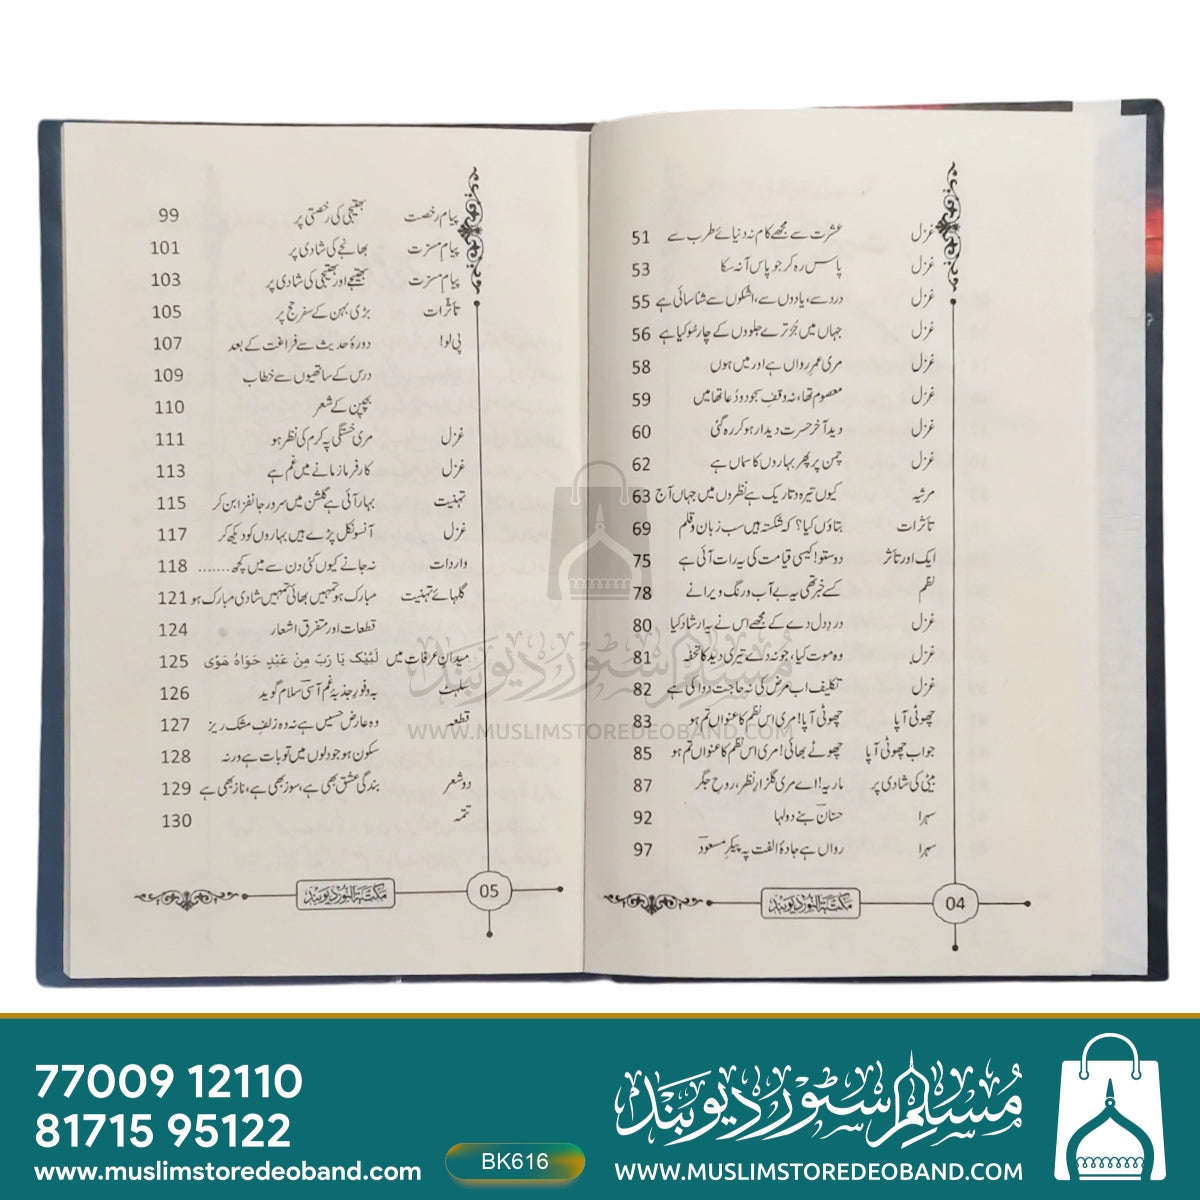 غزل عشرت سے مجھے کام نہ دنیائے طرب سے 51
غزل پاس رہ کر جو پاس آ نہ سکا 53
غزل درد سے، یادوں سے، اشکوں سے شناسائی ہے 55
غزل جہاں میں جُز ترے جلووں کے چارسُو کیا ہے 56
غزل مری عمرِ رواں ہے اور میں ہوں 58
غزل معصوم تھا، نہ وقفِ سجود و دُعا تھا میں 59
غزل دید آخر حسرت دیدار ہو کر رہ گئی 60
غزل چمن پر پھر بہاروں کا سماں ہے 62
مرثیہ کیوں تیرہ و تاریک ہے نظروں میں جہاں آج 63
تأثرات بتاؤں کیا؟ کہ شکستہ ہیں سب زبان و قلم 69
ایک اور تأثر دوستو! کیسی قیامت کی یہ رات آئی ہے 75
نظم کسے خبر تھی یہ بے آب و رنگ ویرانے 78
غزل دردِ دل دے کے مجھے اس نے یہ ارشاد کیا 80
غزل وہ موت کیا، جو نہ دے تیری دید کا تحفہ 81
غزل تکلیف اب مرض کی نہ حاجت دوا کی ہے 82
چھوٹی آپا چھوٹی آپا! مری اس نظم کا عنواں تم ہو 83
جواب چھوٹی آپا چھوٹے بھائی! مری اس نظم کا عنواں تم ہو 85
بیٹی کی شادی پر ماریہ! اے مری گلزارِ نظر، روحِ جگر 87
سہرا حسّان بنے دولہا 92
سہرا رواں ہے جادۂ الفت پہ پیکرِ مسعود 97
مکتبۃ النور دیوبند 04
پیام رخصت بھتیجی کی رخصتی پر 99
پیام مسرّت بھانجے کی شادی پر 101
پیام مسرّت بھتیجے اور بھتیجی کی شادی پر 103
تأثرات بڑی بہن کے سفر حج پر 105
پی لو! دورۂ حدیث سے فراغت کے بعد 107
درس کے ساتھیوں سے خطاب 109
بچپن کے شعر 110
غزل مری خستگی پہ کرم کی نظر ہو 111
غزل کارفرما زمانے میں غم ہے 113
تہنیت بہار آئی ہے گلشن میں سرور جانفزا بن کر 115
غزل آنسو نکل پڑے ہیں بہاروں کو دیکھ کر 117
واردات نہ جانے کیوں کئی دن سے میں کچھ....... 118
گلہائے تہنیت مبارک ہو تمہیں بھائی تمہیں شادی مبارک ہو 121
قطعات اور متفرق اشعار 124
میدانِ عرفات میں لَبَّیْکَ یَا رَبِّ مِنْ عَبْدٍ حَوَاهُ هَوًى 125
سلہٹ بہ وفورِ جذبۂ غم آسی سلام گوید 126
قطعہ وہ عارض حسیں ہے نہ وہ زلفِ مشک ریز 127
سکون ہو جو دلوں میں تو بات ہے ورنہ 128
دو شعر بندگی عشق بھی ہے، سوز بھی ہے، ناز بھی ہے 129
تتمہ 130
مکتبۃ النور دیوبند 05
مُسلم سٹور دیوبند
WWW.MUSLIMSTOREDEOBAND.COM
77009 12110
81715 95122
www.muslimstoredeoband.com
BK616
مُسلم سٹور دیوبند
WWW.MUSLIMSTOREDEOBAND.COM